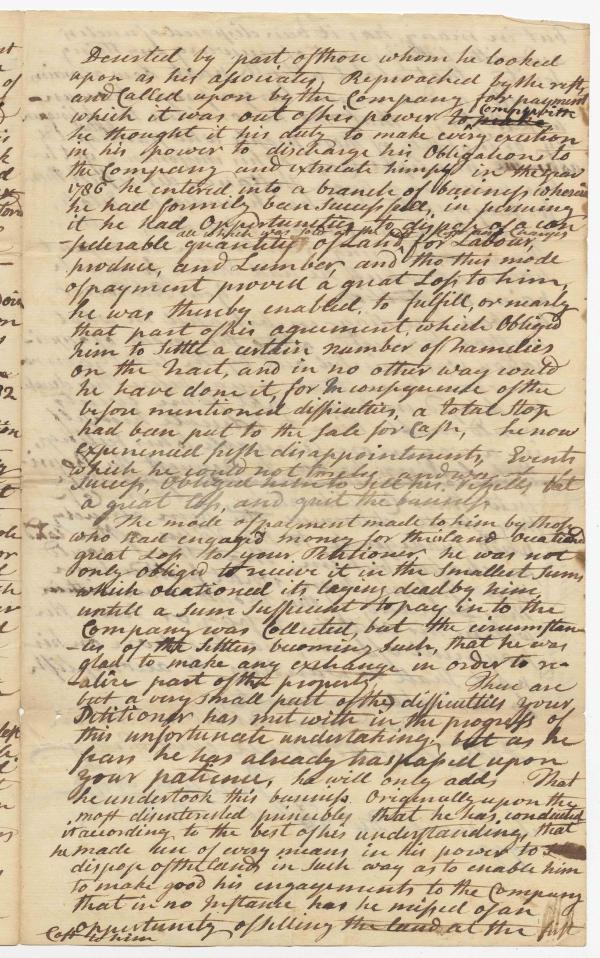 Deserted by part of those whom he looked
upon as his associates, Reproached by the rest,
and Called upon by the Company for payment
which it was out of his power to comply with
he thought it his duty to make every exertion
in his power to discharge his Obligations to
the Company and extricate himself in the year
1786 he entered into a branch of business wherein
he had formily ban Successful, in persuing
it he had Oppertunities to dispose of a con
-siderable quantity of Land, for Labour,
produce, and Lumber, and tho this mode
of payment proved a great Loss to him,
he was thereby enabled, to fulfill, or nearly
that part of his agreement, which Obliged
him to Settle a certain number of Families
on the Tract, and in no other way could
he have done it, for In consequence of the
before mentioned difficulties, a total Stop
had ban put to the Sale for Cash, he now
experienced fresh disappointments, Events
which he could not foresee, and
Success, Obliged him to Sell his at
a great Loss, and quit the business
The mode of payment made to him by those
who had engaged money for the land Ocationed
great Loss to your Petitioner, he was not
only obliged to receive it in the Smallest Sums
which ocationed its laying dead by him,
untill a Sum Sufficient to pay in to the
Company was Collected, but the circumstan
-ces of the Setlers becoming Such, that he was
glad to make any exchange in order to re-
-alize part of the property, These are
but a very Small part of the difficulties your
Petitioner has met with in the progress of
this unfortunate undertaking, but as he
fears he has already trasspased upon
your patience, he will only add, That
he undertook this business Originally upon the
most disinterested principles that he has conducted
it according to the best of his understanding, that
he made use of every means in his power to
dispose of the lands in Such way as to enable him
to make good his engagements to the Company
that in no Instance has he missed of an
opportunity of Selling the land at the first
Cost to him